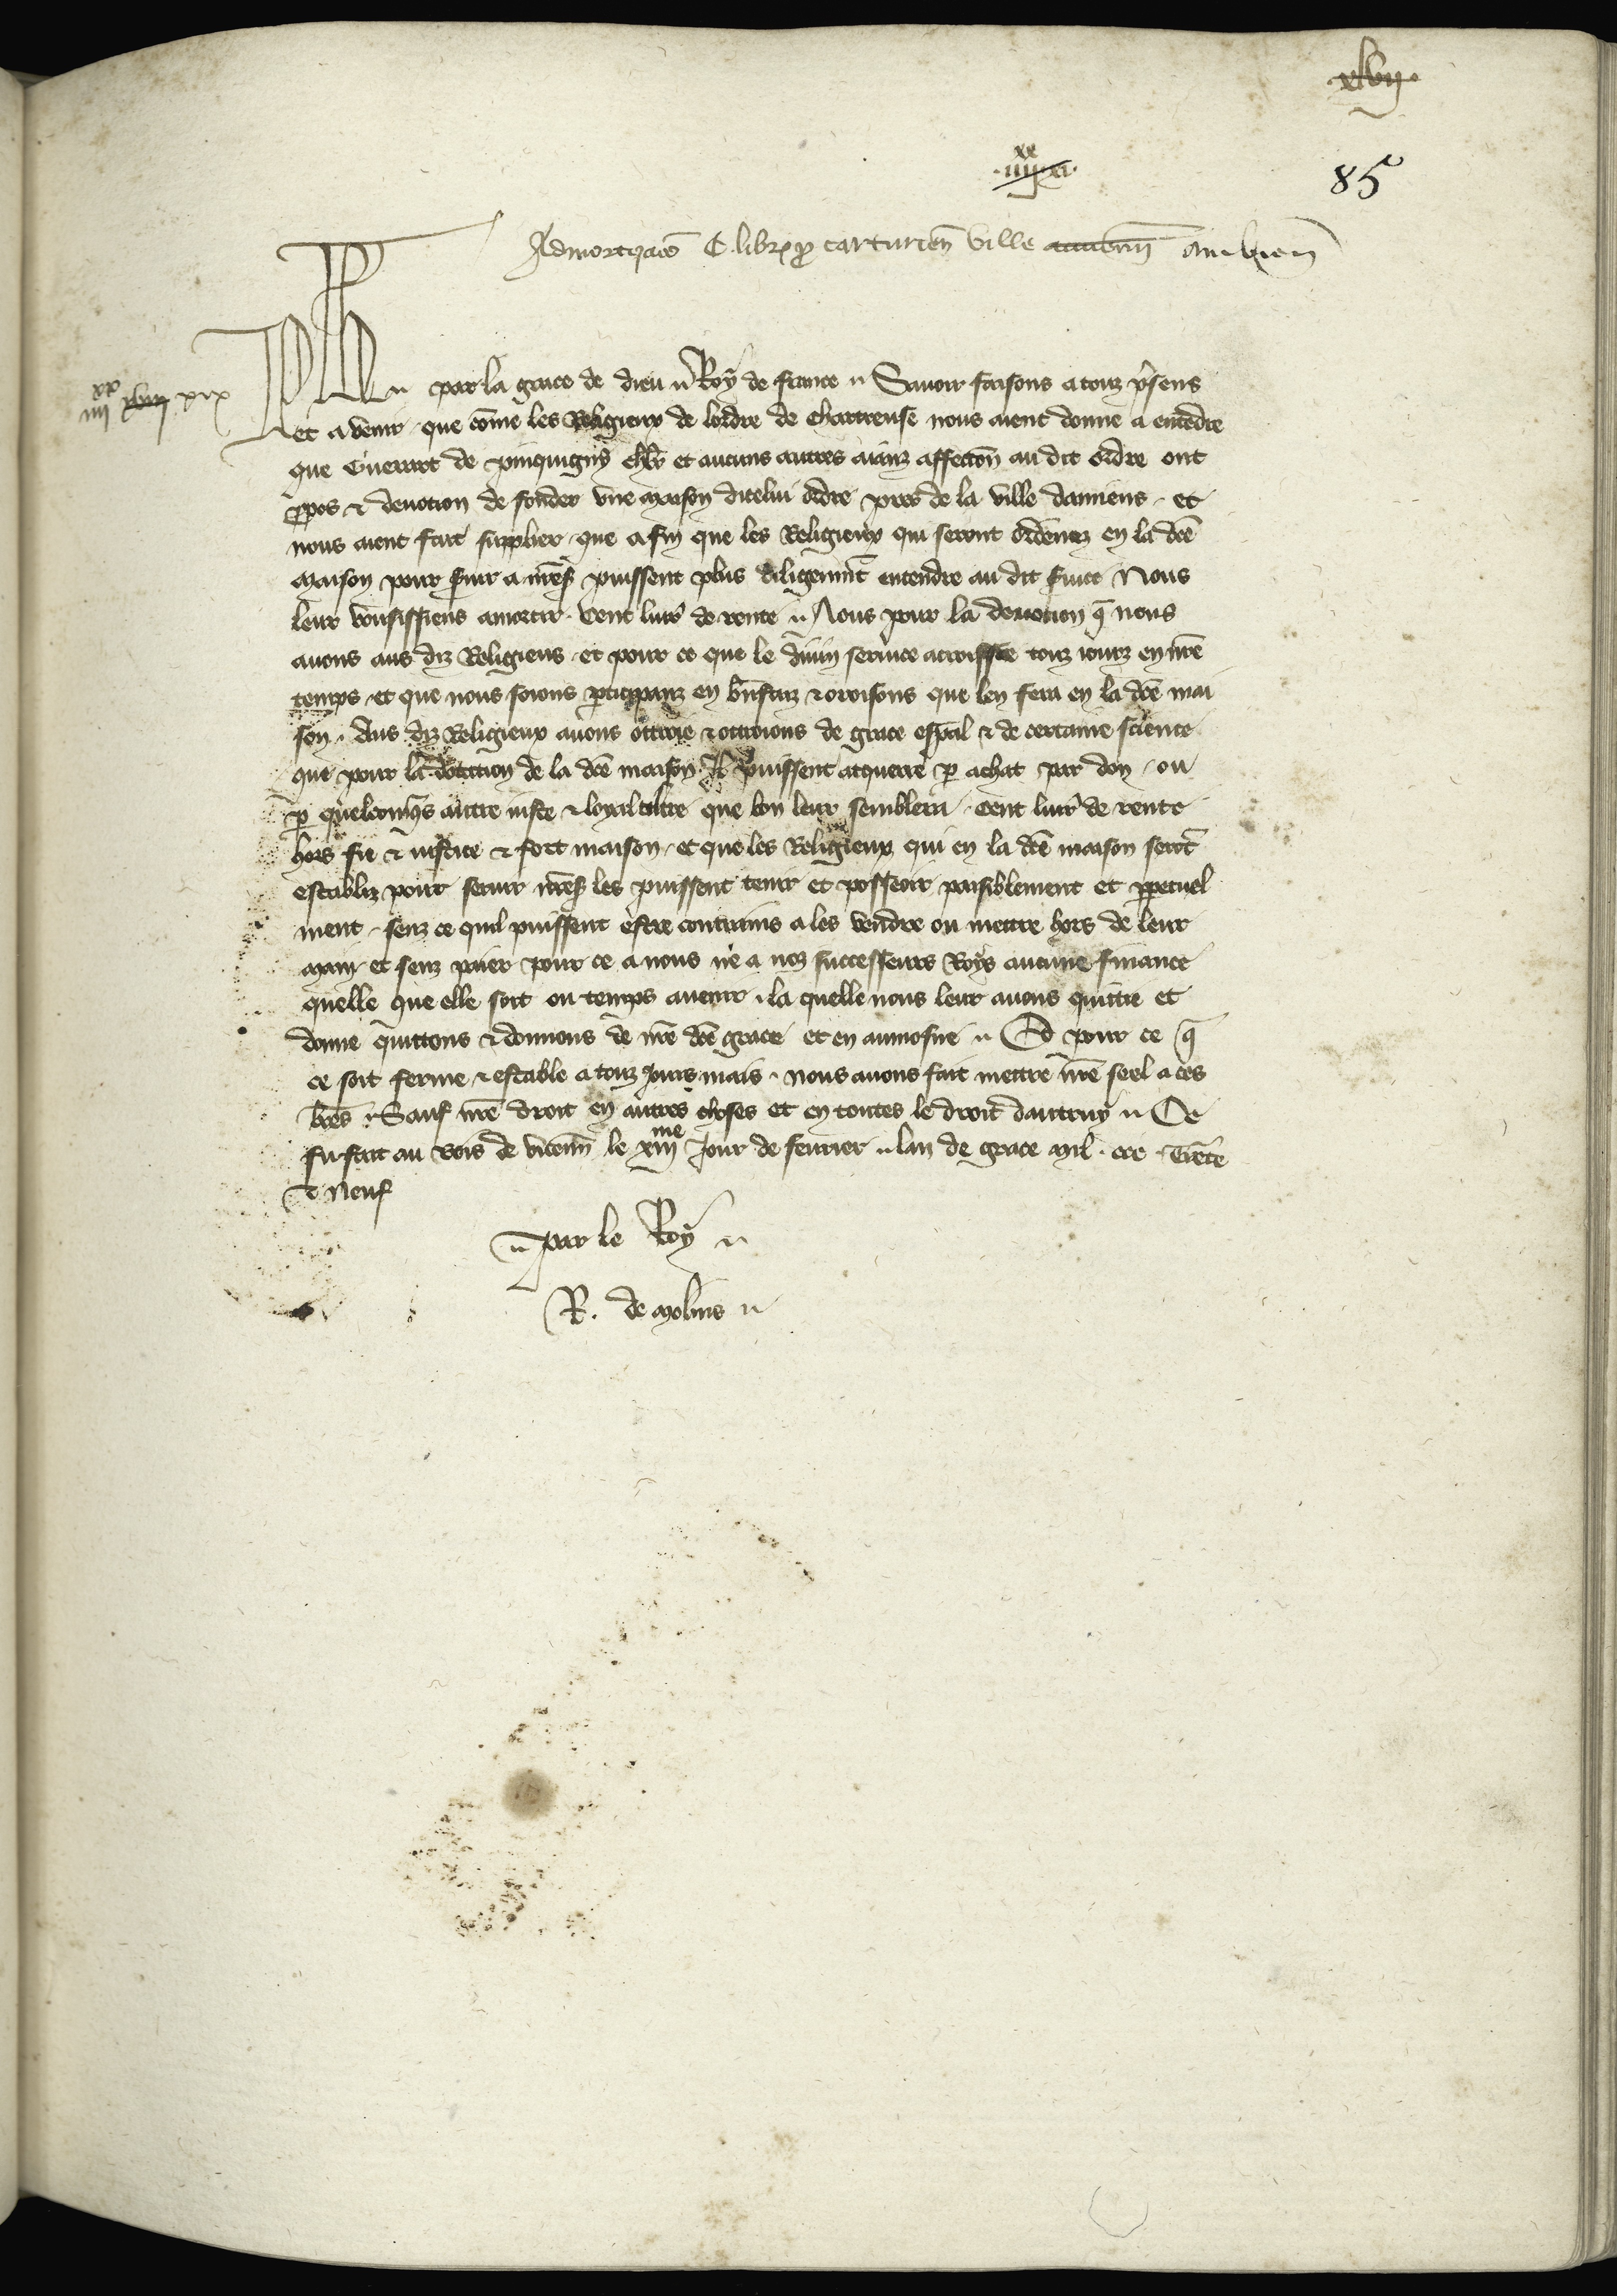 xlvij
iiij^xx xi
85
Admortizacio C. libr pro carturien ville ambien
iiij^xx xix
Ph par la grace de dieu Roy de france Savoir faisons a touz presens
et avenir que cōme les Religieux de lordre de Chartreuse nous aient donne a entēdre
que Guerart de pinquigny chlr et aucuns autres aianz affeccōn au dit ordre ont
ppos & devotion de fonder une maison dicelui ordre pres de la ville damiens et
nous aient fait supplier que a fin que les Religieux qui seront ordenez en la dcē
maison pour svir a nrēs puissent plus diligenmt entendre au dit svice Nous
leur vousissiens amortir Cent livr de rente Nous pour la devotion q̄ nous
avons aus diz Religieus et pour ce que le divin service accroisse touz iours en nrē
temps et que nous soions pticipanz en bn̄faiz & oroisons que len fera en la dcē mai
son Aus diz Religieux avons ottroie & ottroions de grace espāl & de certaine science
que pour la dotation de la dcē maison Il puissent acquerre p achat par don ou
p quelconqs autre iuste & loyal tiltre que bon leur semblera Cent livr de rente
hors fie & iustice & fort maison et que les Religieux qui en la dcē maison serōt
establiz pour servir nrēs les puissent tenir et posseoir paisiblement et ppetuel
ment senz ce quil puissent estre contrains a les vendre ou mettre hors de leur
main et senz paier pour ce a nous ne a noz successeurs Roys aucune finance
quelle que elle soit ou temps avenir la quelle nous leur avons quittie et
donne quittons & donnons de nrē dcē grace et en aumosne Et pour ce q̄
ce soit ferme & estable a touz jours mais nous avons fait mettre nrē seel a ces
lrēs Sauf nrē droit en autres choses et en toutes le droit dautruy Ce
fu fait au bois de vicenn le xiiij^me Jour de fevrier lan de grace mil ccc Trēte
& Neuf
par le Roy
R. de molins